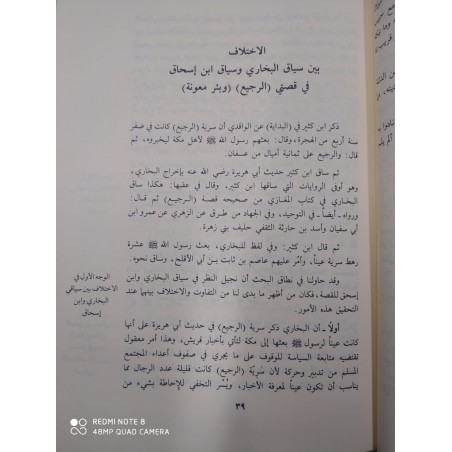 الاختلاف
بين سياق البخاري وسياق ابن إسحاق
في قصتي (الرجيع) (وبئر معونة)
ذكر ابن كثير في (البداية) عن الواقدي أن سرية (الرجيع) كانت في صفر
سنة أربع من الهجرة، وقال: بعثهم رسول الله ﷺ لأهل مكة ليخبروه، ثم
قال: والرجيع على ثمانية أميال من عسفان.
ثم ساق ابن كثير حديث أبي هريرة رضي الله عنه بإخراج البخاري،
وهو أوفى الروايات التي ساقها ابن كثير، وقال في عقبها: هكذا ساق
البخاري في كتاب المغازي من صحيحه قصة (الرجيع) ثم قال:
ورواه ـ أيضاً ـ في التوحيد، وفي الجهاد من طرق عن الزهري عن عمرو ابن
أبي سفيان وأسد بن حارثة الثقفي حليف بني زهرة.
ثم قال ابن كثير: وفي لفظ للبخاري، بعث رسول الله ﷺ عشرة
رهط سرية عيناً، وأمّر عليهم عاصم بن ثابت بن أبي الأقلح، وساق نحوه.
وقد حاولنا في نطاق البحث أن نجيل النظر في سياق البخاري وابن
إسحق للقصة، فكان أظهر ما بدى لنا من التفاوت والاختلاف بينهما عند
التحقيق هذه الأمور.
الوجه الأول في
الاختلاف بين سياقي
البخاري وابن
إسحاق
أولاً ـ أن البخاري ذكر سرية (الرجيع) في حديث أبي هريرة على أنها
كانت عيناً لرسول ﷺ بعثها إلى مكة لتأتي بأخبار قريش، وهذا أمر معقول
تقتضيه متابعة السياسة للوقوف على ما يجري في صفوف أعداء المجتمع
المسلم من تدبير وحركة لأن سَرِيّة (الرجيع) كانت قليلة عدد الرجال مما
يناسب أن تكون عيناً لمعرفة الأخبار، ويُسْر التخفي للإحاطة بشيء من
٣٩
REDMI NOTE 8
48MP QUAD CAMERA